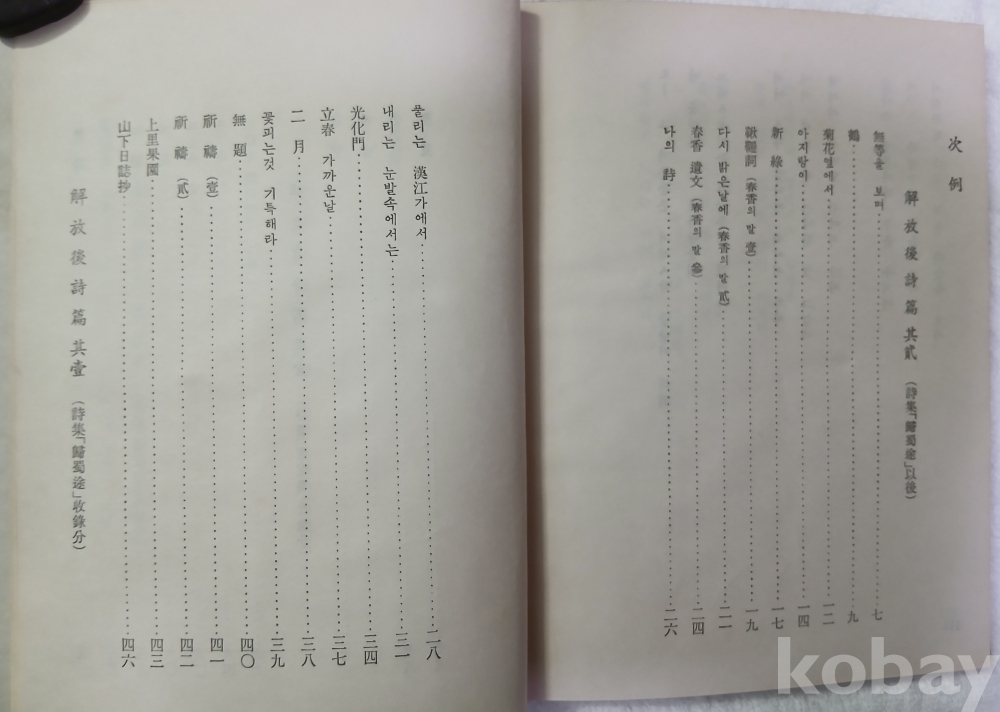 次例
解放後詩篇 其貳 (詩集「歸蜀途」以後)
無等을 보며 七
鶴 九
菊花옆에서 一二
아지랑이 一四
新綠 一七
鞦韆詞 (春香의 말 壹) 一九
다시 밝은날에 (春香의 말 貳) 二一
春香 遺文 (春香의 말 參) 二四
나의 詩 二六
풀리는 漢江가에서 二八
내리는 눈발속에서는 三一
光化門 三四
立春 가까운날 三七
二月 三八
꽃피는것 기특해라 三九
無題 四〇
祈禱 (壹) 四一
祈禱 (貳) 四二
上里果園 四三
山下日誌抄 四六
解放後詩篇 其壹 (詩集「歸蜀途」收錄分)
kobay